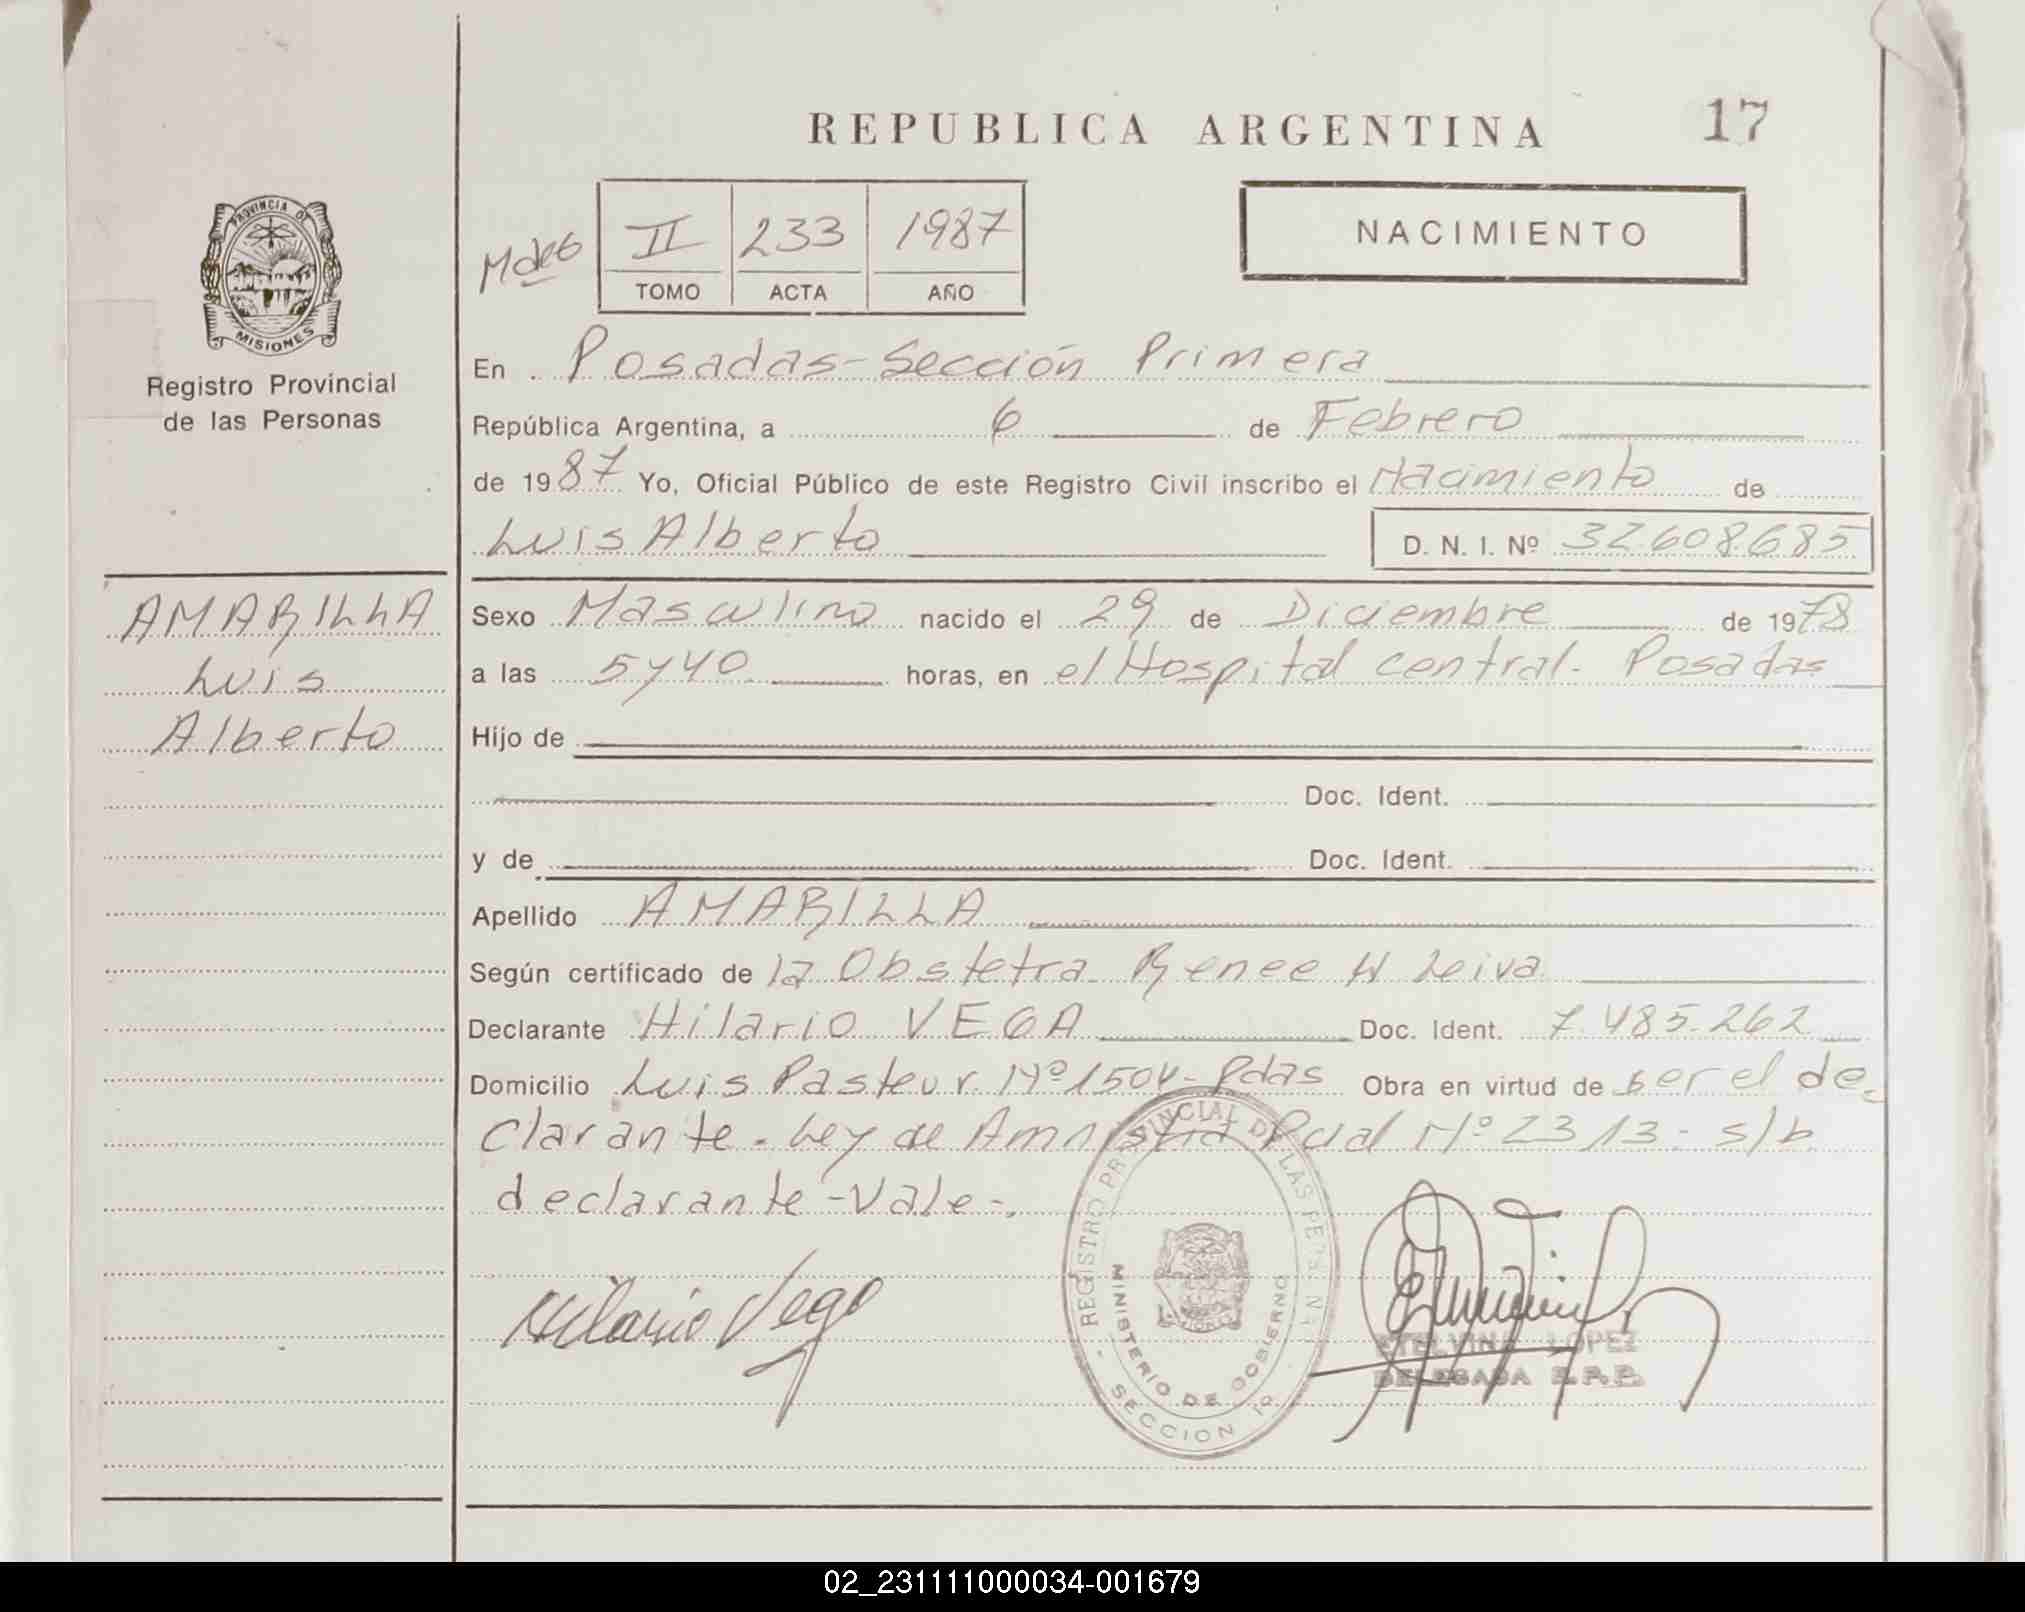 REPUBLICA ARGENTINA
17
PROVINCIA DE
MISIONES
Registro Provincial
de las Personas
II 233 1987
TOMO ACTA AÑO
NACIMIENTO
En Posadas-Sección Primera
República Argentina, a 6 de Febrero
de 1987 Yo, Oficial Público de este Registro Civil inscribo el Nacimiento de
Luis Alberto D. N. I. Nº 32.608.685
AMARILLA
Luis
Alberto
Sexo Masculino nacido el 29 de Diciembre de 1978
a las 5y40 horas, en el Hospital central. Posadas
Hijo de
Doc. Ident.
y de Doc. Ident.
Apellido AMARILLA
Según certificado de la Obstetra Renee H Leiva
Declarante Hilario VEGA Doc. Ident. 7.485.262
Domicilio Luis Pasteur Nº 1504-Pdas Obra en virtud de ser el de
clarante. Ley de Amnistia Pcial Nº 2313- s/b
declarante-Vale-.
Hilario Vega
REGISTRO PROVINCIAL DE LAS PERSONAS
MINISTERIO DE GOBIERNO
SECCION 1º
ETELVINA LOPEZ
DELEGADA R.P.P.
02_231111000034-001679